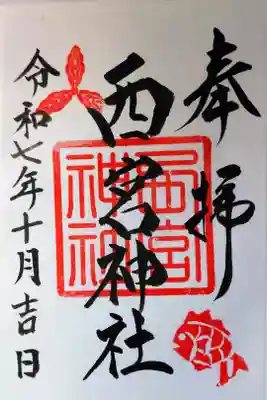 奉拝
西宮神社
西宮神社
令和七年十月吉日